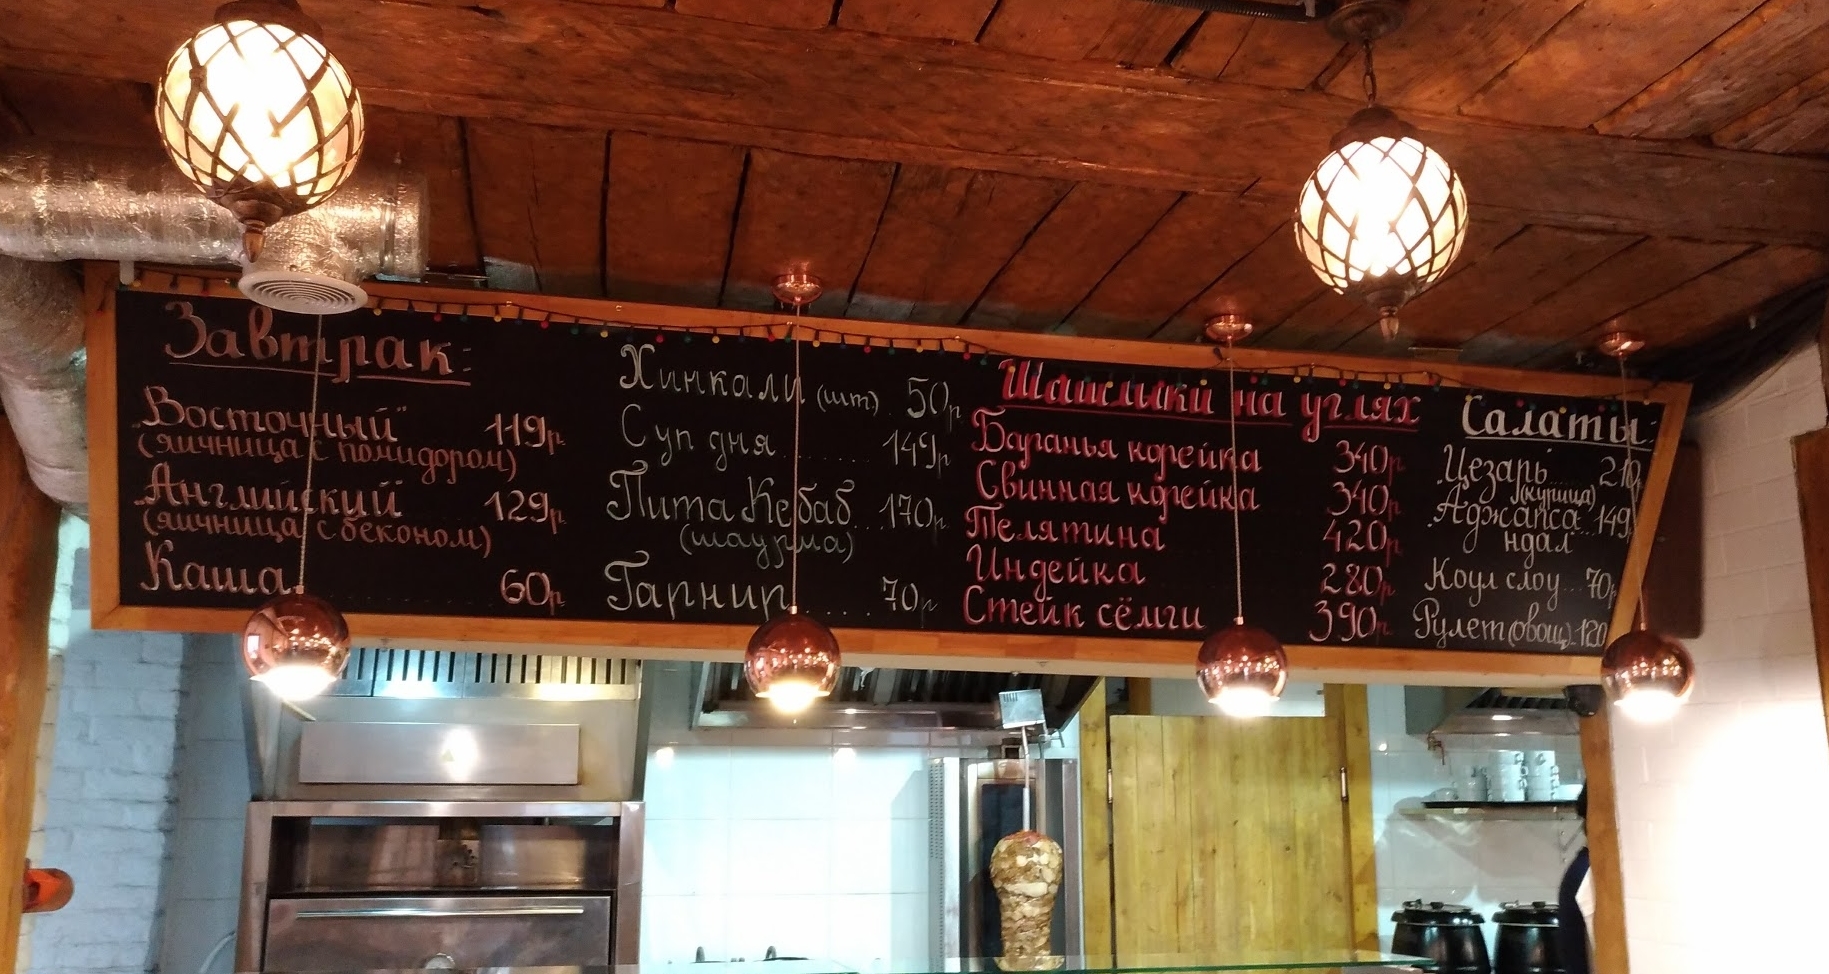 Завтрак:
"Восточный" 119р.
(яичница с помидором)
"Английский" 129р.
(яичница с беконом)
Каша 60р.
Хинкали (шт) 50р
Суп дня 149р.
Пита Кебаб 170р.
(шаурма)
Гарнир 70р
Шашлыки на углях
Баранья корейка 340р
Свинная корейка 340р
Телятина 420р
Индейка 280р
Стейк сёмги 390р
Салаты:
"Цезарь" 210р
(курица)
Аджапса 149р
ндал
Коул слоу 70р
Рулет (овощ) 120